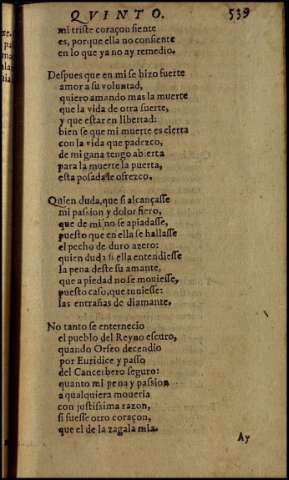 QVINTO. 539
mi triste coraçon siente
es, porque ella no consiente
en lo que ya no ay remedio.
Despues que en mi se hizo fuerte
amor a su voluntad,
quiero amando mas la muerte
que la vida de otra suerte,
y que estar en libertad:
bien se que mi muerte es cierta
con la vida que padezco,
de mi gana tengo abierta
para la muerte la puerta,
esta posada le ofrezco.
Quien duda, que si alcançasse
mi passion y dolor fiero,
que de mi no se apiadasse,
puesto que en ella se hallasse
el pecho de duro azero:
quien duda si ella entendiesse
la pena deste su amante,
que a piedad no se mouiesse,
puesto caso, que tuuiesse:
las entrañas de diamante.
No tanto se enternecio
el pueblo del Reyno escuro,
quando Orfeo decendio
por Euridice y passo
del Cancerbero seguro:
quanto mi pena y passion
a qualquiera moueria
con justissima razon,
si fuesse otro coraçon,
que el de la zagala mia.
Ay